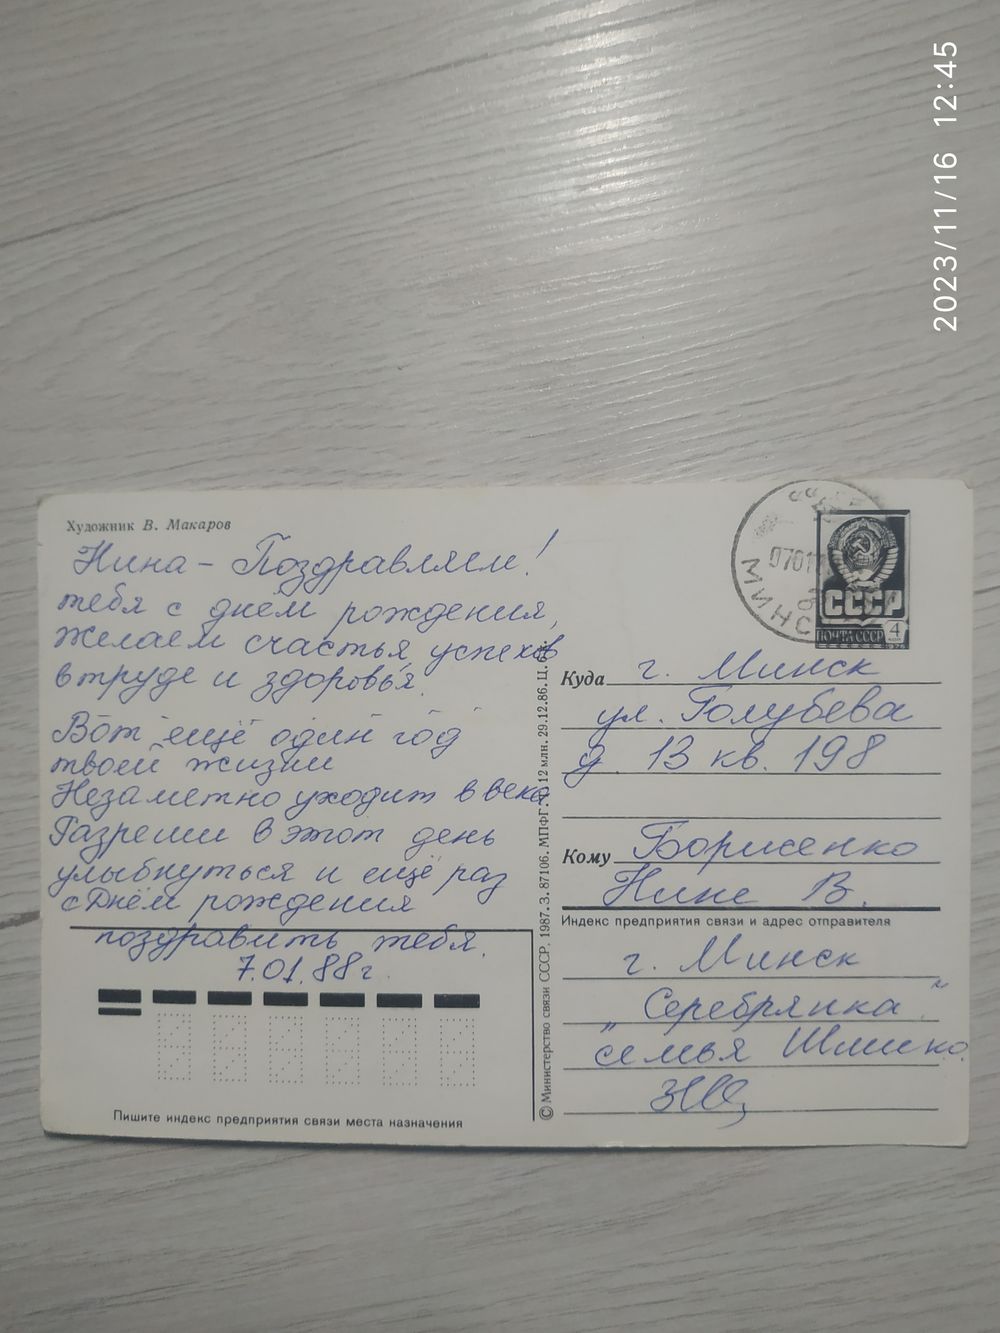 2023/11/16 12:45
Художник В. Макаров
Нина – Поздравляем!
тебя с днём рождения,
желаем счастья, успехов
в труде и здоровья.
Вот ещё один год
твоей жизни
Незаметно уходит в века
Разреши в этот день
улыбнуться и ещё раз
с Днём рождения
поздравить тебя.
7.01.88 г.
Пишите индекс предприятия связи места назначения
© Министерство связи СССР, 1987. З. 87106. МПФГ. 12 млн. 29.12.86. Ц.
МИНСК
СССР
ПОЧТА СССР
4
1976
Куда г. Минск
ул. Голубева
д. 13 кв. 198
Кому Борисенко
Нине В.
Индекс предприятия связи и адрес отправителя
г. Минск
„Серебрянка"
семья